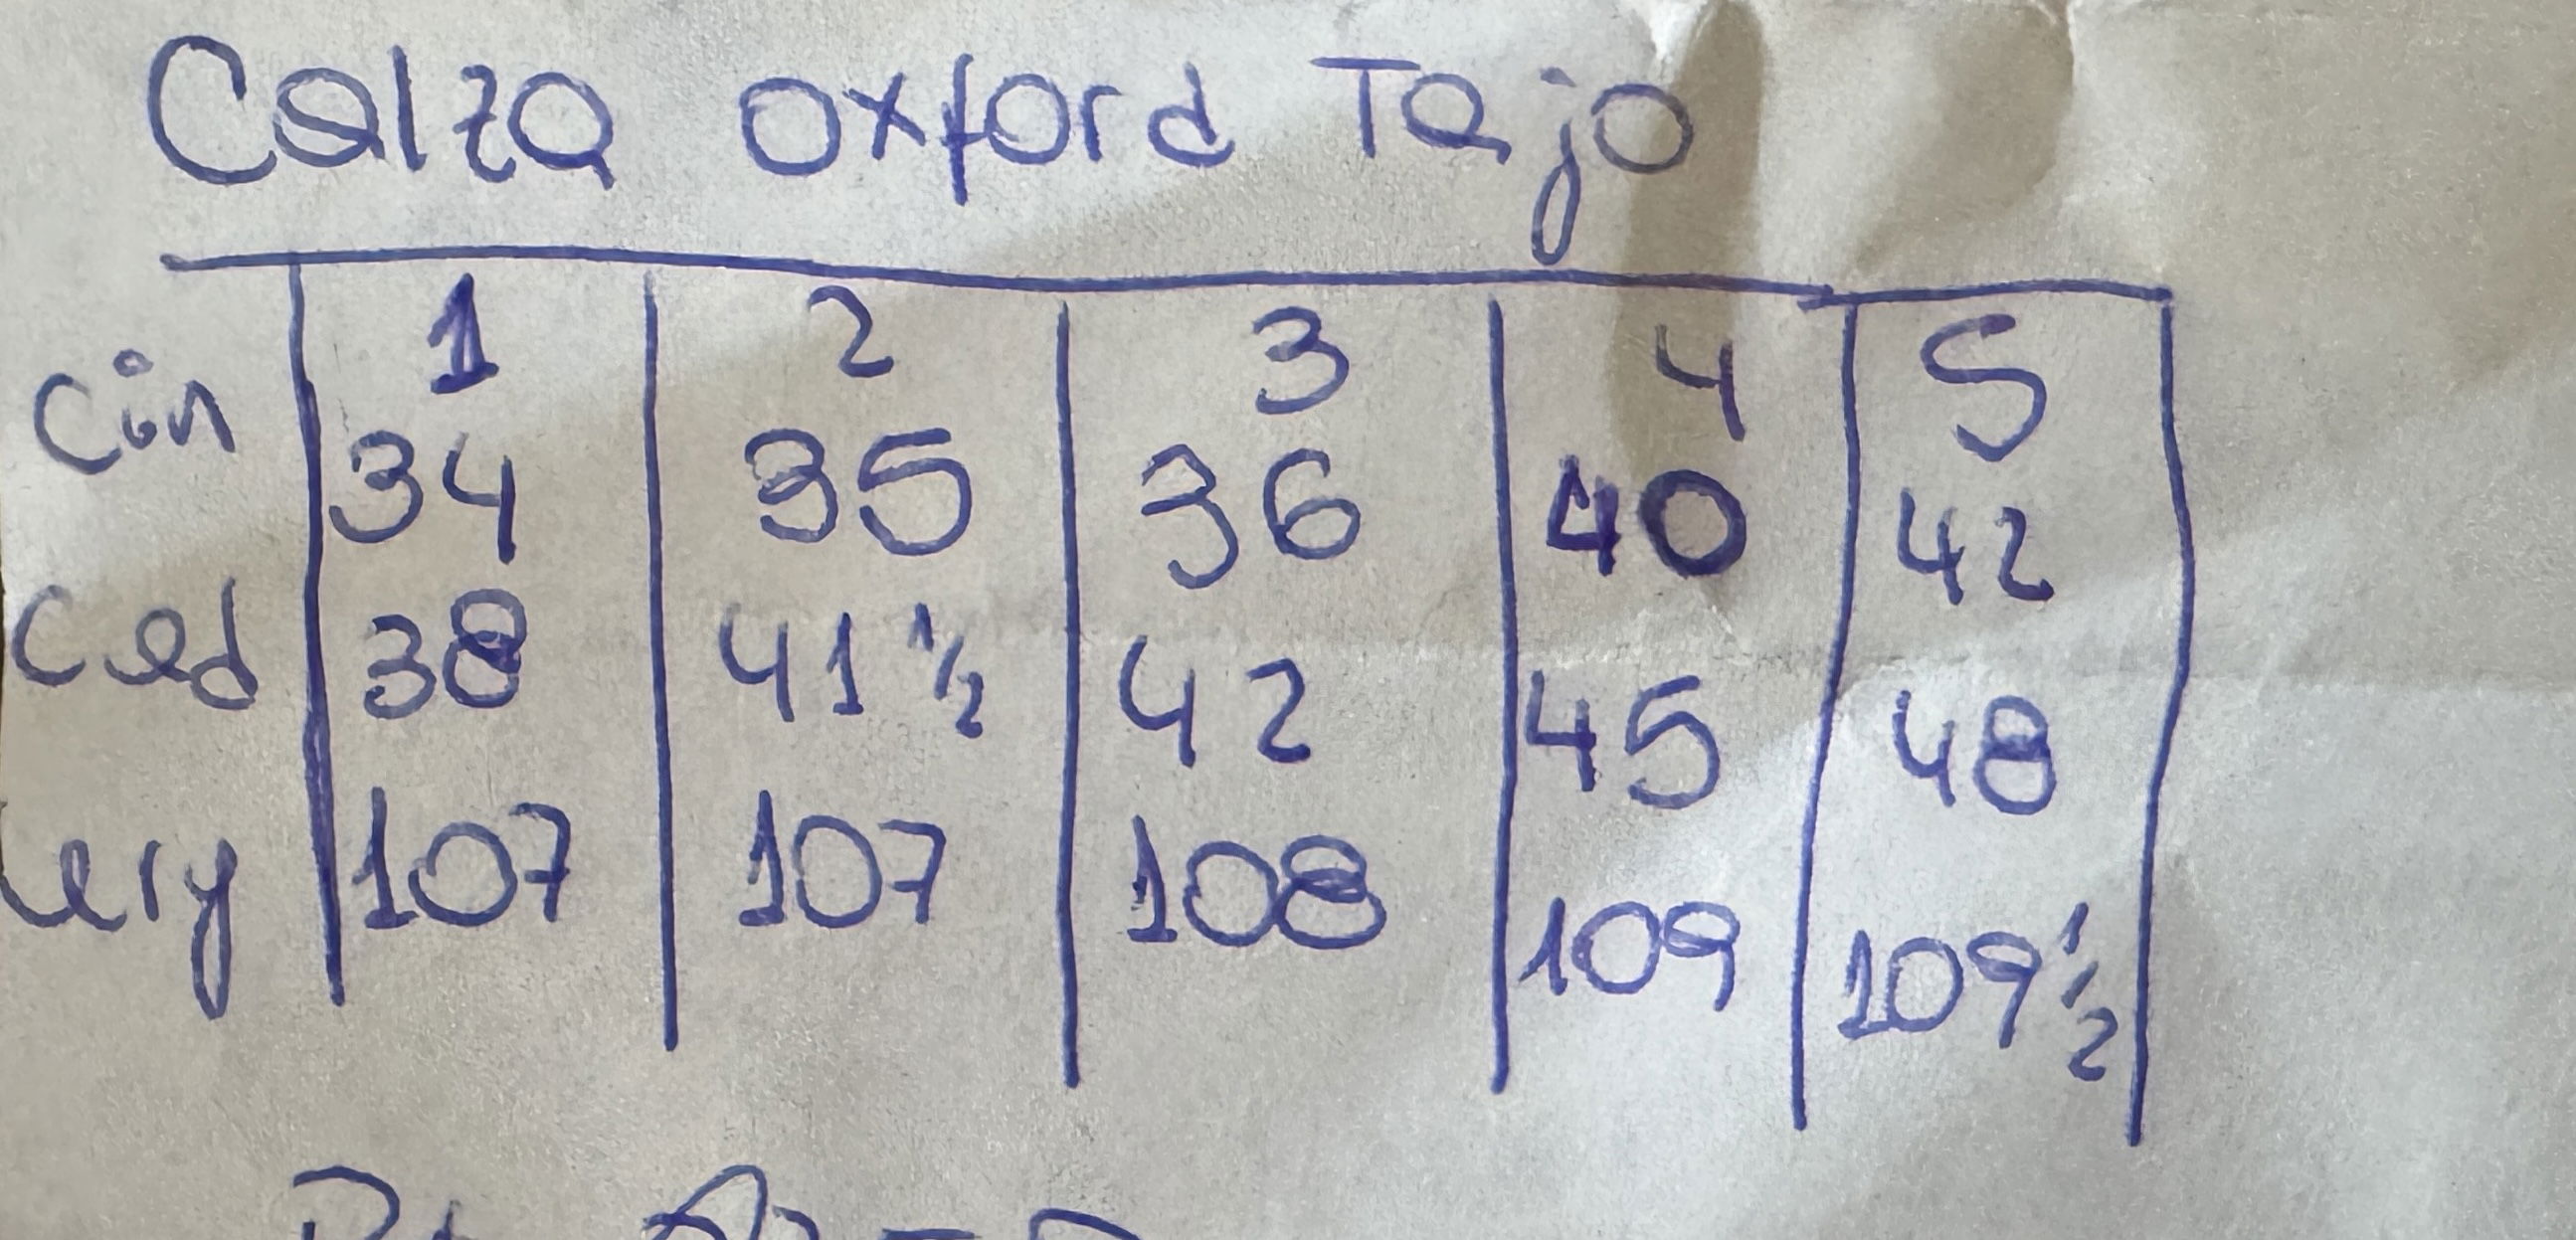 Calza oxford Tajo
1 2 3 4 5
Cin 34 35 36 40 42
Cad 38 41 1/2 42 45 48
larg 107 107 108 109 109 1/2